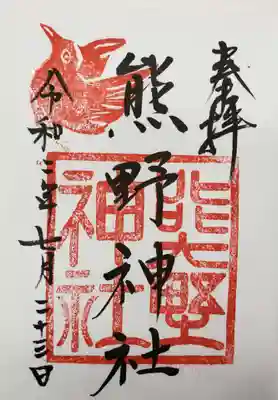 奉拝
熊野神社
熊野
神社
令和三年七月二十三日